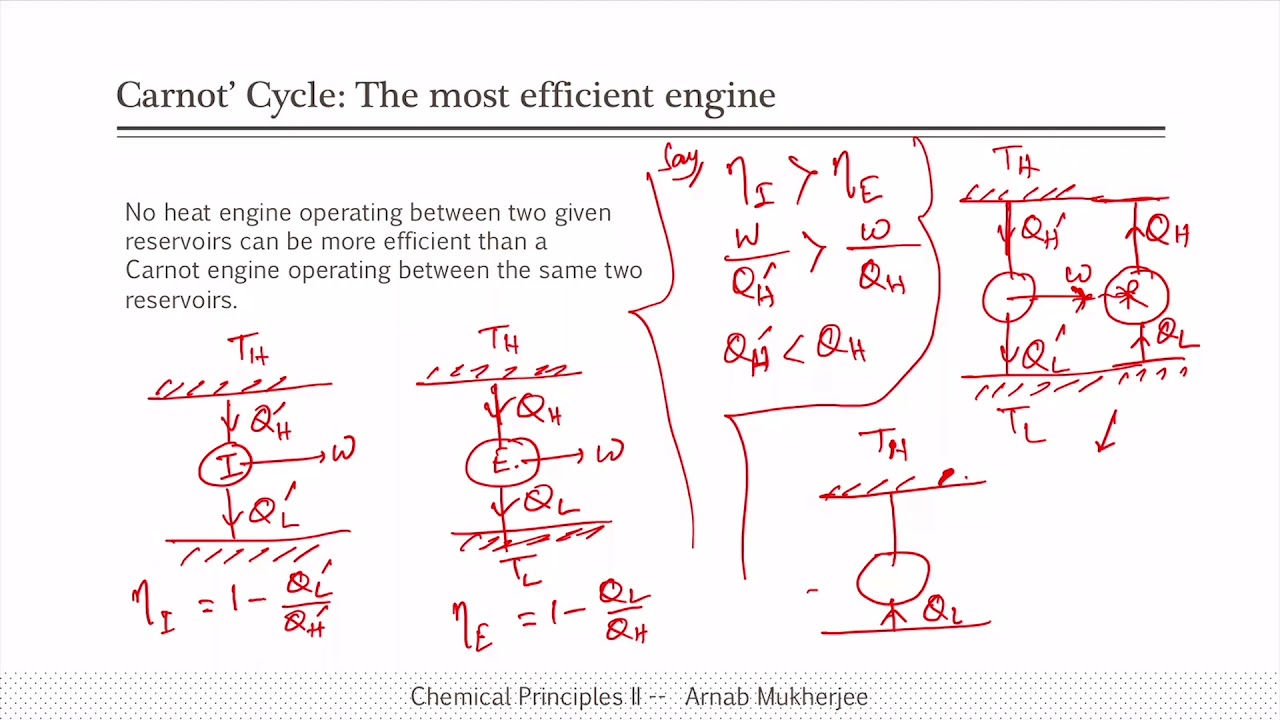 Carnot’ Cycle: The most efficient engine
No heat engine operating between two given
reservoirs can be more efficient than a
Carnot engine operating between the same two
reservoirs.
Say, η_I > η_E
W/Q_H′ > W/Q_H
Q_H′ < Q_H
T_H
Q_H′
I
W
Q_L′
η_I = 1 - Q_L′/Q_H′
T_H
Q_H
E
W
Q_L
T_L
η_E = 1 - Q_L/Q_H
T_H
Q_H′
Q_H
W
R
Q_L′
Q_L
T_L
T_H
Q_L
Chemical Principles II -- Arnab Mukherjee